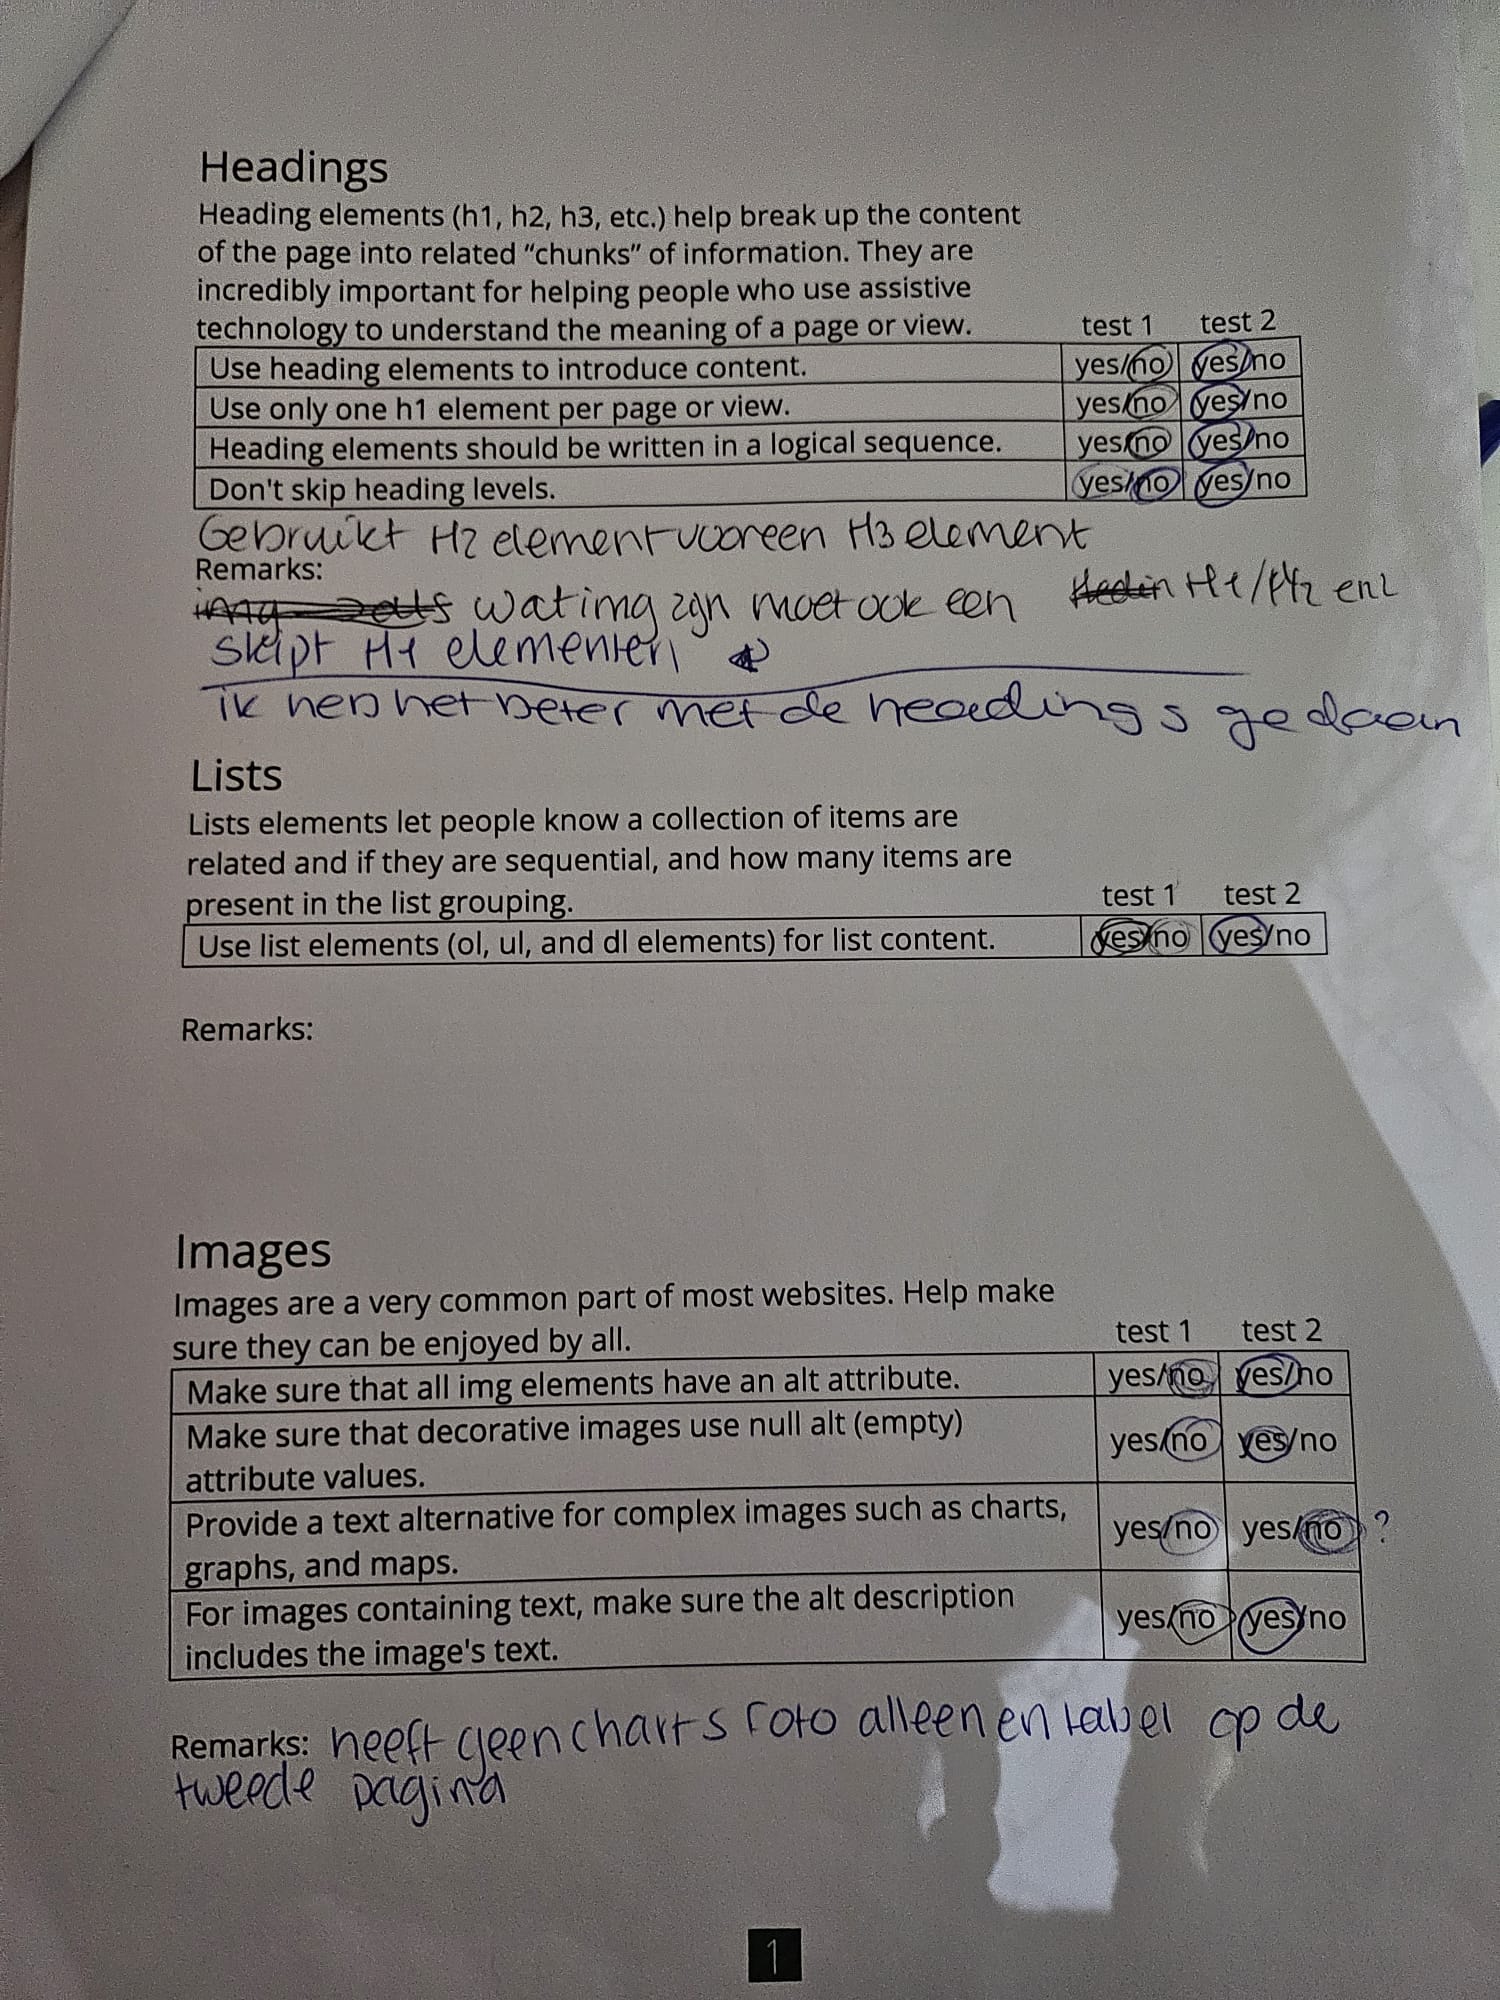 Headings
Heading elements (h1, h2, h3, etc.) help break up the content
of the page into related “chunks” of information. They are
incredibly important for helping people who use assistive
technology to understand the meaning of a page or view. test 1 test 2
Use heading elements to introduce content. yes/no yes/no
Use only one h1 element per page or view. yes/no yes/no
Heading elements should be written in a logical sequence. yes/no yes/no
Don't skip heading levels. yes/no yes/no
Gebruikt H2 element voor een H3 element
Remarks:
wat img zijn moet ook een H1/H2 enz
skipt H1 elementen
ik heb het beter met de headings gedaan
Lists
Lists elements let people know a collection of items are
related and if they are sequential, and how many items are
present in the list grouping. test 1 test 2
Use list elements (ol, ul, and dl elements) for list content. yes/no yes/no
Remarks:
Images
Images are a very common part of most websites. Help make
sure they can be enjoyed by all. test 1 test 2
Make sure that all img elements have an alt attribute. yes/no yes/no
Make sure that decorative images use null alt (empty)
attribute values. yes/no yes/no
Provide a text alternative for complex images such as charts,
graphs, and maps. yes/no yes/no ?
For images containing text, make sure the alt description
includes the image's text. yes/no yes/no
Remarks: heeft geen charts foto alleen en label op de
tweede pagina
1